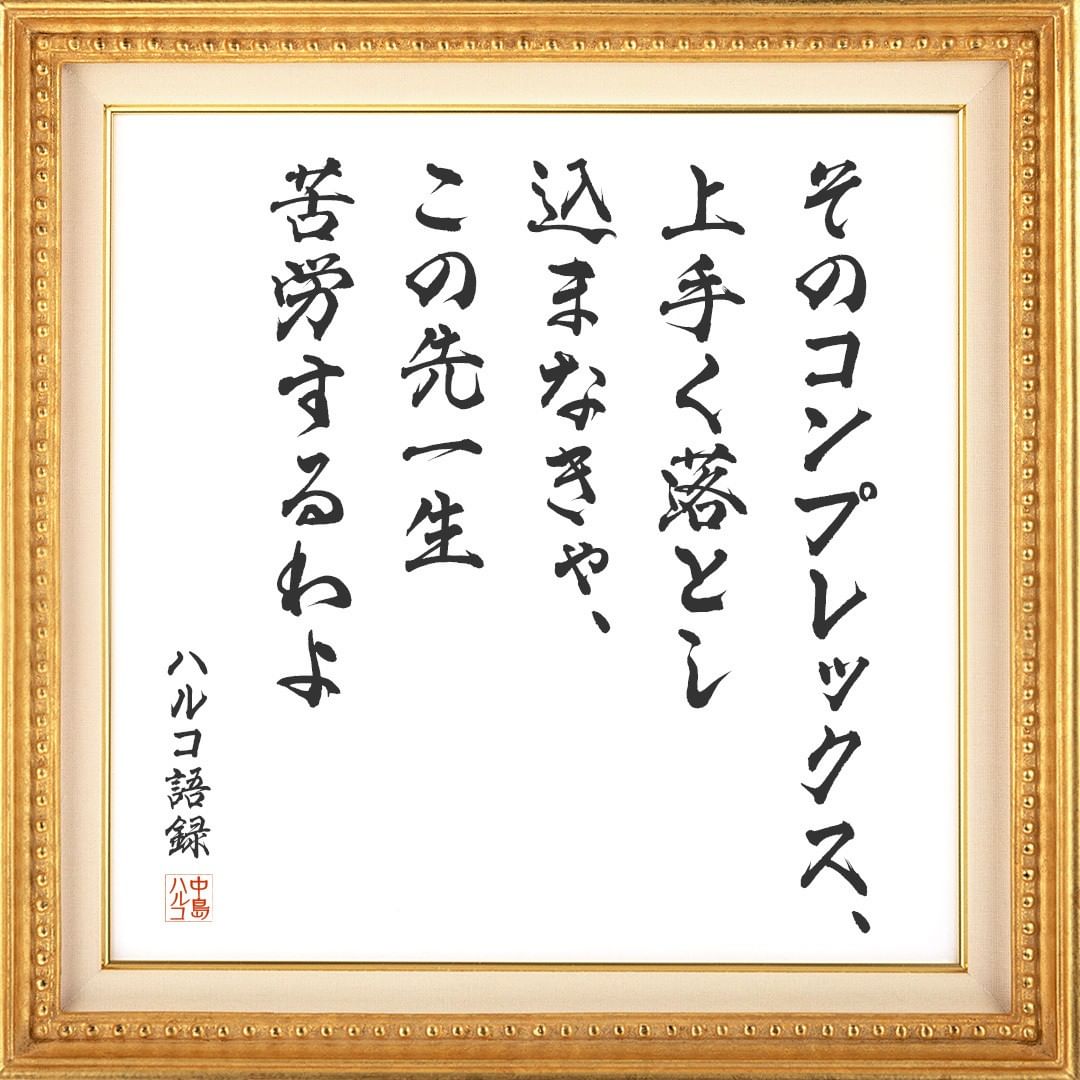 そのコンプレックス、
上手く落とし
込まなきゃ、
この先一生
苦労するわよ
ハルコ語録
中島
ハルコ